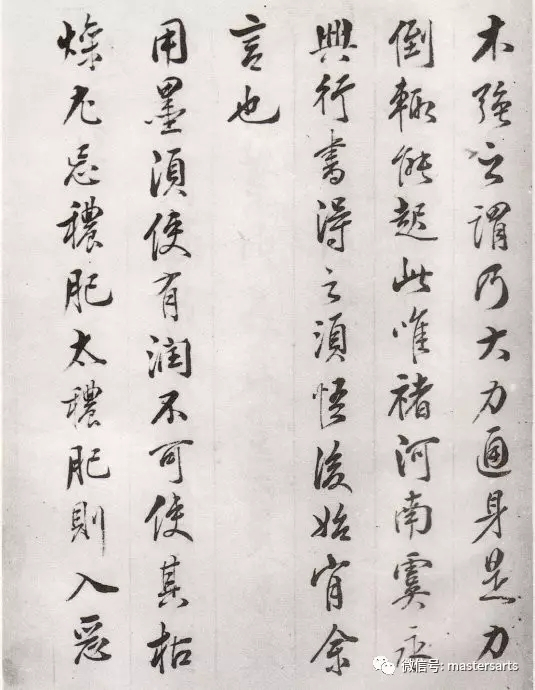 木強之謂乃大力通身是力
倒輒能起此唯褚河南虞永
興行書得之須悟後始肯余
言也
用墨須使有潤不可使其枯
燥尤忌穠肥太穠肥則入惡
微信号: mastersarts